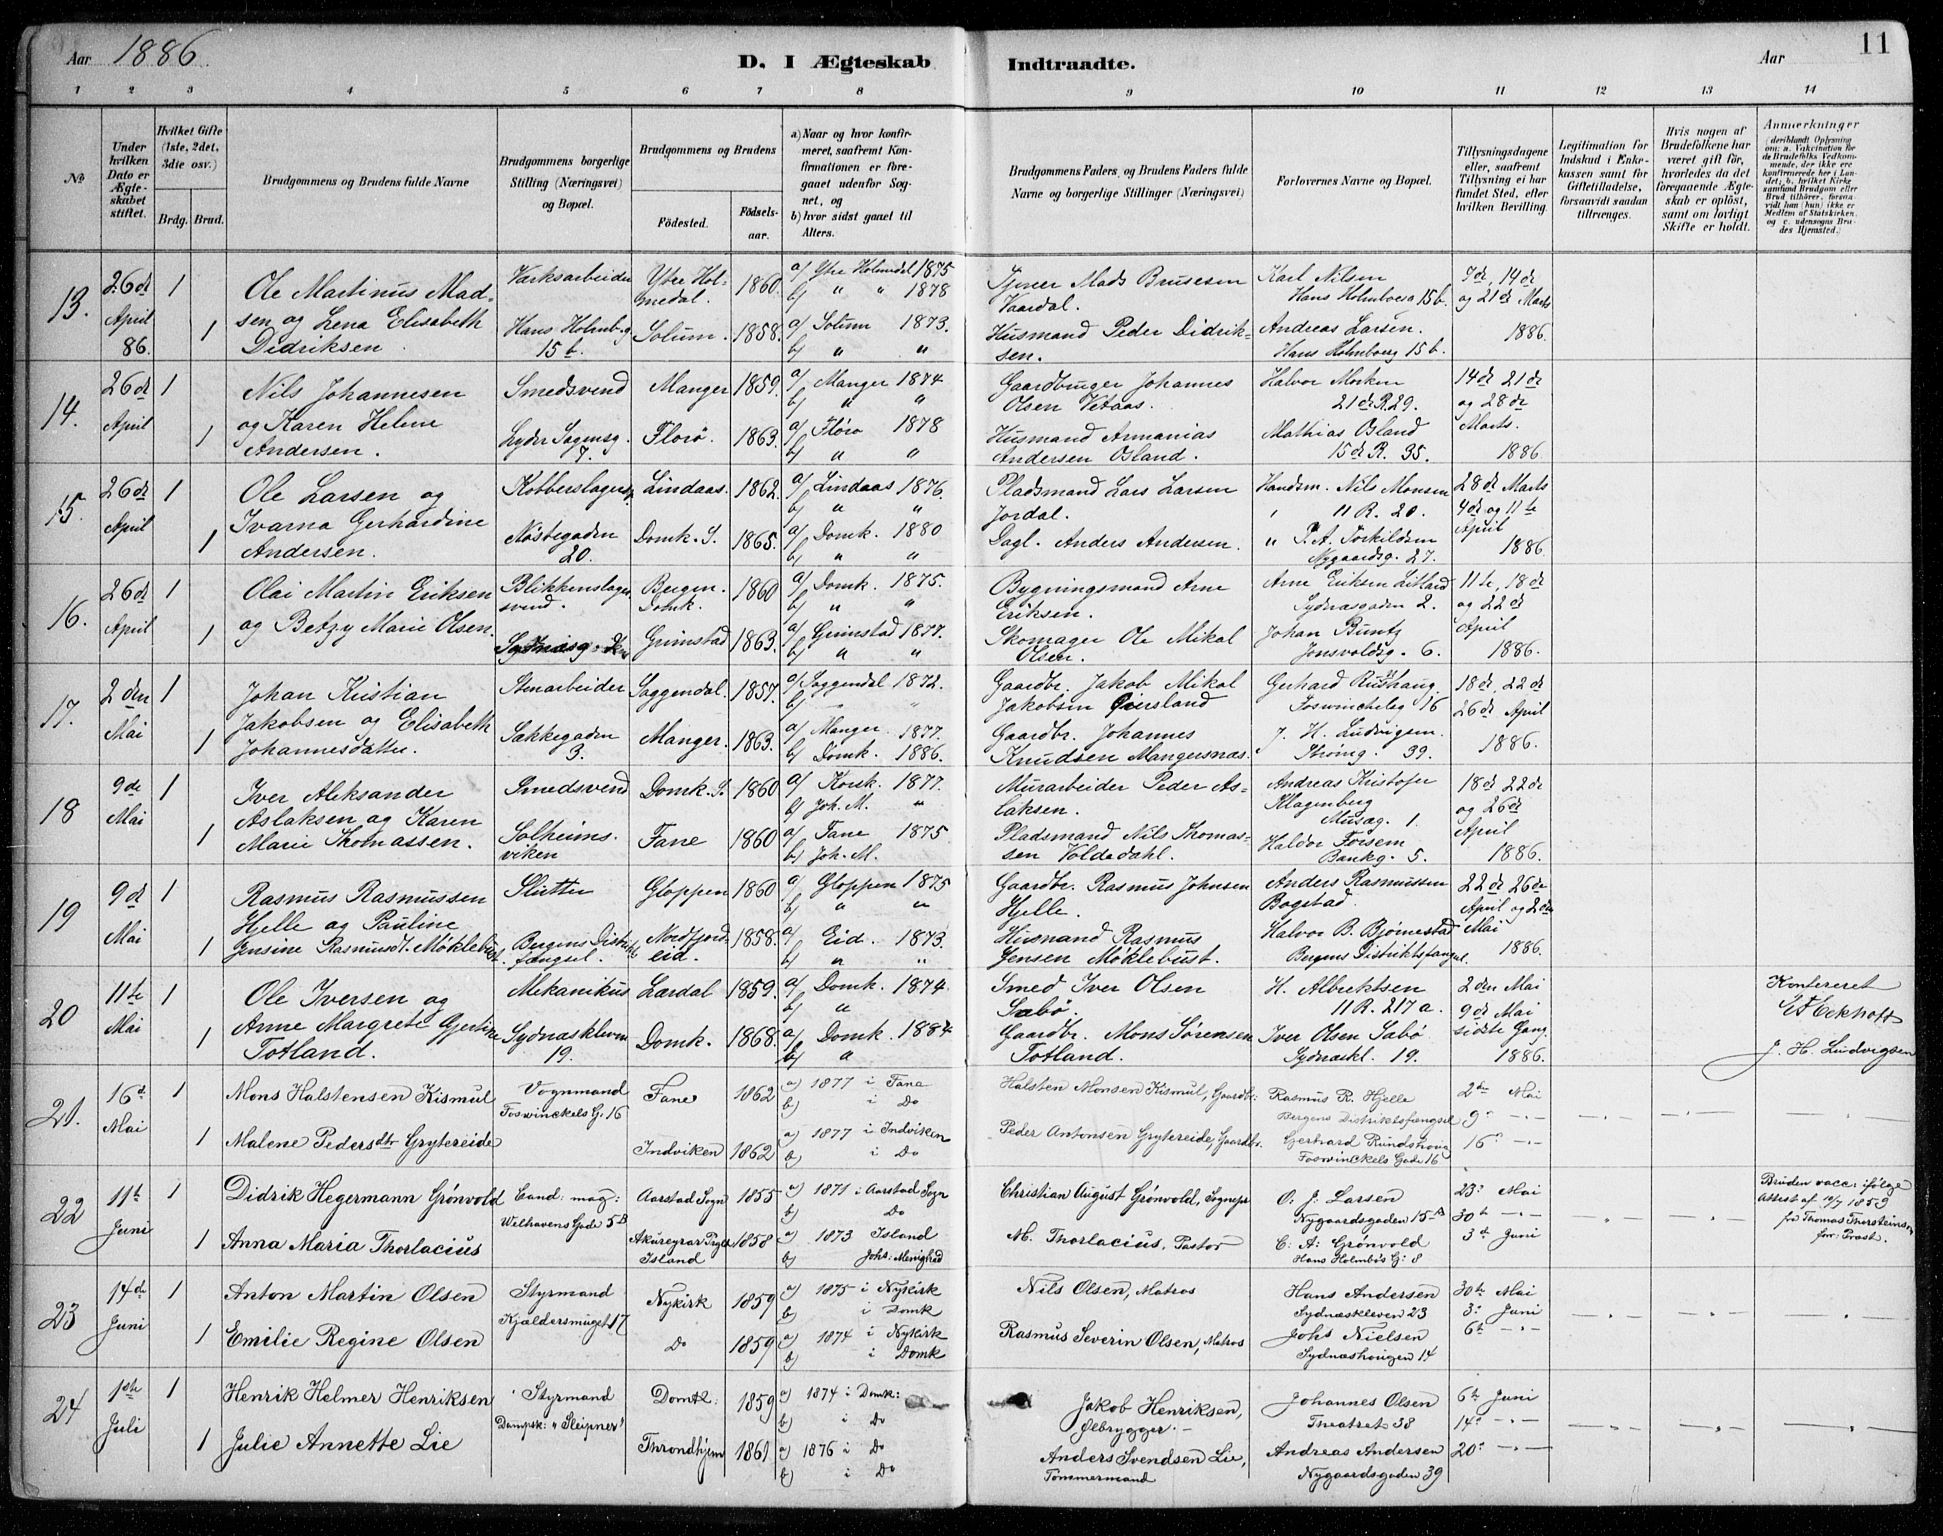 Aar 1886. D. I Ægteskab Indtraadte. Aar 11
1 2 3 4 5 6 7 8 9 10 11 12 13 14
No
Under hvilken Dato er Ægteskabet stiftet.
Hvilket Gifte (1ste, 2det, 3die osv.)
Brdg. Brud.
Brudgommens og Brudens fulde Navne
Brudgommens borgerlige Stilling (Næringsvei) og Bopæl.
Brudgommens og Brudens
Fødested. Fødselsaar.
a) Naar og hvor konfirmeret, saafremt Konfirmationen er foregaaet udenfor Sognet, og
b) hvor sidst gaaet til Alters.
Brudgommens Faders og Brudens Faders fulde Navne og borgerlige Stillinger (Næringsvei)
Forlovernes Navne og Bopæl.
Tillysningsdagene eller, saafremt Tillysning ei har fundet Sted, efter hvilken Bevilling.
Legitimation for Indskud i Enkekassen samt for Giftetilladelse, forsaavidt saadan tiltrænges.
Hvis nogen af Brudefolkene har været gift før, hvorledes da det foregaaende Ægteskab er opløst, samt om lovligt Skifte er holdt.
Anmerkninger (deriblandt Oplysning om: a. Vakcination for de Brudefolks Vedkommende, der ikke ere konfirmerede her i Landet; b. hvilket Kirkesamfund Brudgom eller Brud tilhører, forsaavidt han (hun) ikke er Medlem af Statskirken, og c. udensogns Brudes Hjemsted.)
13. 26de April 86. 1
Ole Martinus Madsen og Lena Elisabeth Didriksen.
Værksarbeider Hans Holmb.g. 15 b.
Ytre Holmedal. 1860 a/ Ytre Holmedal 1875 b/ " " 1878
1 Solum. 1858. a/ Solum 1873. b/ " "
Mads Brusesen Vaardal.
Husmand Peder Didriksen.
Karl Nilsen Hans Holmboesg 15 b.
Andreas Larsen. Hans Holmboesg 15 b.
7de, 14de og 21de Marts 1886.
14. 26de April 1
Nils Johannesen og Karen Helene Andersen.
Smedsvend Lyder Sagensg. 7.
Manger 1859. a/ Manger 1874 b/ " "
1 Florø. 1863. a/ Florø 1878 b/ " "
Gaardbruger Johannes Olsen Vetaas.
Husmand Armanias Andersen Osland.
Halvor Morken 21de R. 29.
Mathias Osland 15de R. 35.
14de 21de og 28de Marts. 1886.
15. 26de April 1
Ole Larsen og Ivarna Gerhardine Andersen.
Kobberslager Nøstegaden 20.
Lindaas. 1862. a/ Lindaas 1876. b/ " "
1 Domk. S. 1865. a/ Domk. 1880 b/ " "
Pladsmand Lars Larsen Jordal.
Dagl. Anders Andersen.
Handsm. Nils Monsen 11 R. 20.
" T. A. Torkildsen Nygaardsg. 27.
28de Marts 4de og 11te April 1886.
16. 26de April 1
Olai Martin Eriksen og Betzy Marie Olsen.
Blikkenslagersvend.
Bergen. Domk. 1860 a/ Domk. 1875. b/ " "
1 Grimstad 1863. a/ Grimstad 1877. b/ " "
Bygningsmand Arne Eriksen.
Skomager Ole Mikal Olsen.
Arne Eriksen Litland Sydnæsgaden 2.
Johan Buntz Jonsvoldsg. 6.
11te, 18de og 22de April 1886.
17. 2den Mai 1
Johan Kristian Jakobsen og Elisabeth Johannesdatter.
Stenarbeider Sækkegaden 3.
Soggendal. 1857. a/ Soggendal 1872. b/ " "
1 Manger. 1863. a/ Manger. 1877. b/ Domk. 1886.
Gaardbr. Jakob Mikal Jakobsen Eiersland
Gaardbr. Johannes Knudsen Mangersnæs.
Gerhard Rushaug. Foswinckelsg 16
J. H. Ludvigsen. Strømg. 39.
18de, 22de 26de April 1886.
18 9de Mai 1
Iver Aleksander Aslaksen og Karen Marie Thomassen.
Smedsvend Solheimsviken
Domk. S. 1860 a/ Korsk. 1877. b/ Joh. M. "
1 Fane 1860 a/ Fane 1875 b/ Joh. M.
Murarbeider Peder Aslaksen.
Pladsmand Nils Thomassen Voldedahl.
Andreas Kristofer Klagenberg Musæg. 1.
Haldor Forsem Bankg. 5.
18de 22de og 26de April 1886.
19 9de Mai 1
Rasmus Rasmussen Hjelle og Pauline Jensine Rasmusdt. Møklebust.
Slutter Bergens Distriktsfængsel.
Gloppen 1860 a/ Gloppen 1875 b/ " "
1 Nordfjordeid. 1858. a/ Eid. 1873. b/ " "
Gaardbr. Rasmus Johnsen Hjelle.
Husmand Rasmus Jensen Møklebust.
Anders Rasmussen Bogstad.
Halvor B. Bjørnestad Bergens Distriktsfængsel.
22de 26de April og 2den Mai 1886.
20 11te Mai 1
Ole Iversen og Anne Margrete Gjertine Totland.
Mekanikus Sydnæskleven 19.
Lærdal 1859. a/ Domk. 1874. b/ "
1 Domk. 1868. a/ Domk. 1884 b/ "
Smed Iver Olsen Sabø.
Gaardbr. Mons Sørensen Totland.
H. Albrektsen 11 R. 217 a.
Iver Olsen Sabø Sydnæskl. 19.
2den Mai 9de Mai sidste Gang. 1886.
Konfereret Eckhoff
J. H. Ludvigsen
21. 16d Mai 1
Mons Halstensen Kismul
Vognmand Foswinckels G. 16
Fane 1862 a) 1877 i Fane b) i Do
1 Malene Pedersdtr Grytereide
Indviken 1862 a) 1877 i Indviken b) i Do
Halsten Monsen Kismul, Gaardbr:
Peder Antonsen Grytereide, Gaardbr.
Rasmus R. Hjelle Bergens Distriktsfængsel
Gerhard Rundshaug Foswinckels Gade 16
2den Mai 9d –"– 16d –"–
22 11te Juni 1
Didrik Hegermann Grønvold
Cand: mag: Welhavens Gade 5B
Aarstad Sogn 1855 a) 1871 i Aarstad Sogn b) Do
1 Anna Maria Thorlacius
Akureyrar Island 1858 a) 1873 Island b) Johs: Menighed
Christian August Grønvold, Sognepr
M. Thorlacius, Pastor
O. J. Larsen Nygaardsgaden 15A
C. A. Grønvold Hans Holmbös G: 8
23d Mai 30te –"– 3d Juni
Bruden vacc: ifølge Attest af 10/7 1859 fra Thomas Thorsteinson forr: Prost.
23 14de Juni 1
Anton Martin Olsen
Styrmand Kjeldersmuget 17
Nykirk 1859 a) 1875 i Nykirk b) i Domk
1 Emilie Regine Olsen
Do 1859 a) 1874 i Nykirk b) i Domk
Nils Olsen, Matros
Rasmus Severin Olsen, Matros
Hans Andersen Sydnæskleven 23
Johs Nielsen Sydnæshougen 14
30te Mai 3d Juni 6te –"–
24 1ste Juli 1
Henrik Helmer Henriksen
Styrmand Dampsk: "Sleipner"
Domk: 1859 a) 1874 i Domk: b) i Do
1 Julie Annette Lie
Throndhjem 1861 a) 1876 i Do b) i Do
Jakob Henriksen, Ølbrygger.
Anders Svendsen Lie, Tømmermand
Johannes Olsen Theatret 38
Andreas Andersen Nygaardsgaden 39
6te Juni 14d –"– 20d –"–